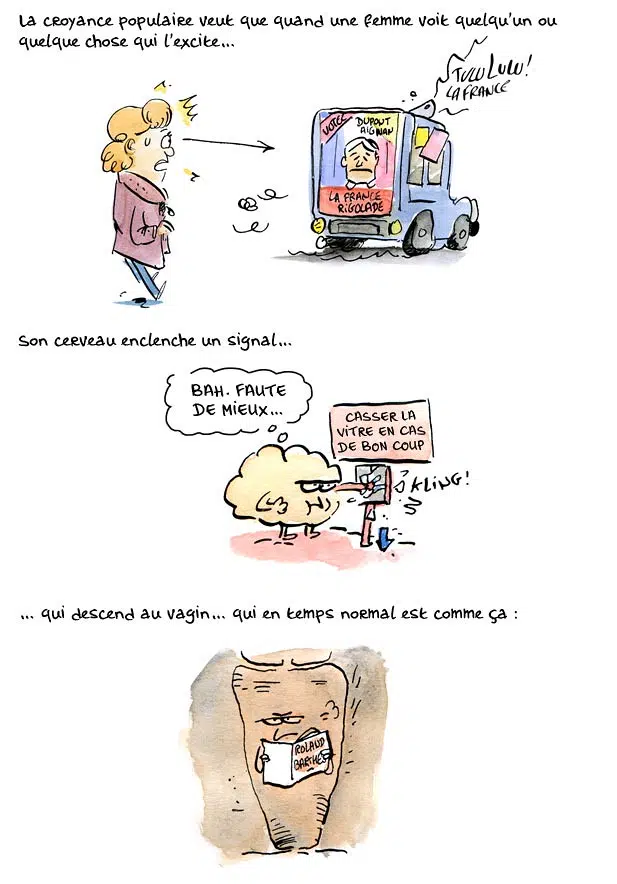 La croyance populaire veut que quand une femme voit quelqu'un ou
quelque chose qui l'excite...
TULU LULU!
LA FRANCE
VOTEZ
DUPONT
AIGNAN
LA FRANCE
RIGOLADE
Son cerveau enclenche un signal...
BAH. FAUTE
DE MIEUX...
CASSER LA
VITRE EN CAS
DE BON COUP
KLING!
... qui descend au vagin... qui en temps normal est comme ça :
ROLAND
BARTHES